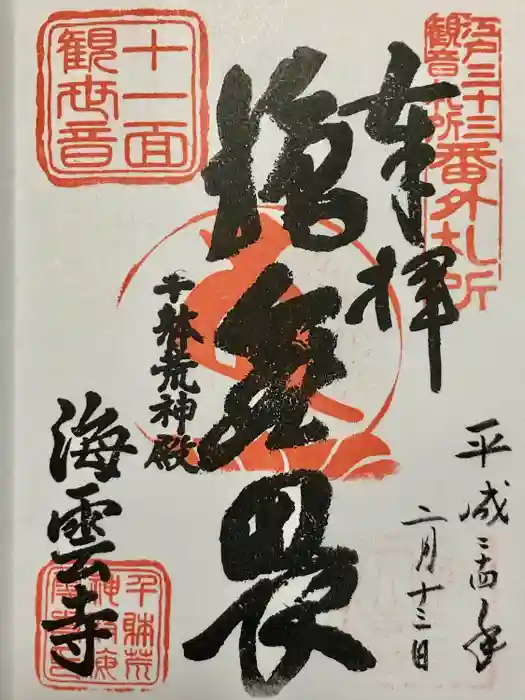 江戸三十三
観音札所
番外札所
奉拝
施無畏
十一面
観世音
千躰荒神殿
海雲寺
平成二四年
二月十三日
千躰荒